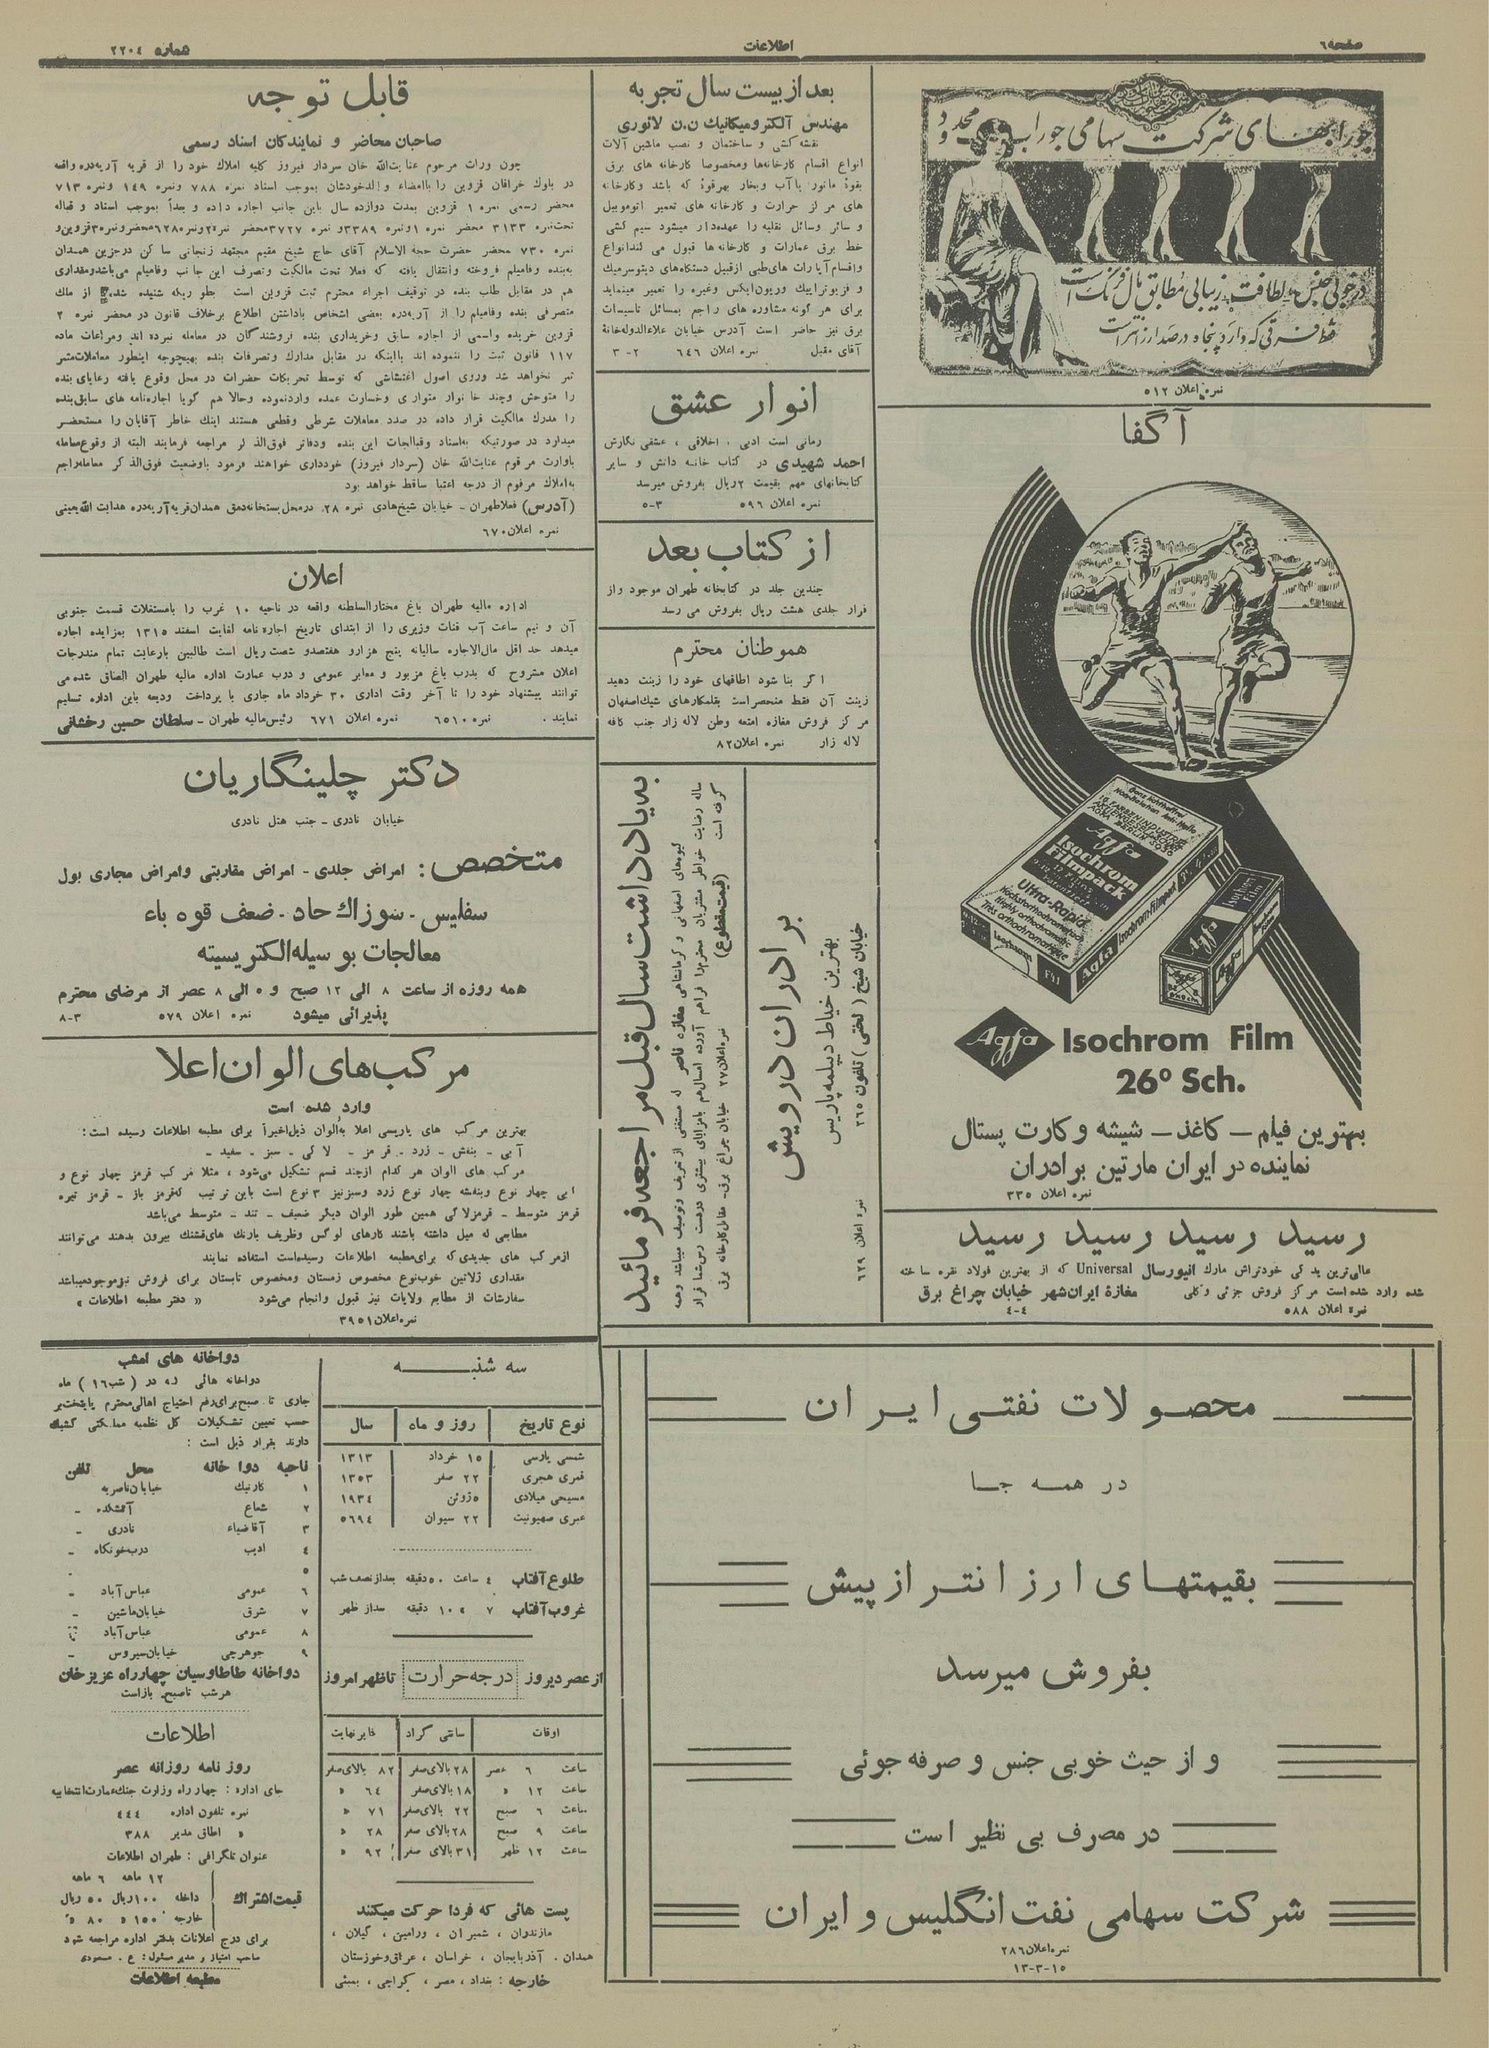 صفحه ۶
اطلاعات
شماره ۲۲۰۴
جورابهای شرکت سهامی جوراب محدود
نمره اعلان ۵۱۲
آگفا
Agfa
Isochrom
Filmpack
Ultra-Rapid
Agfa Isochrom Film
26° Sch.
بهترین فیلم – کاغذ – شیشه و کارت پستال
نماینده در ایران مارتین برادران
نمره اعلان ۳۳۵
رسید رسید رسید رسید
عالی‌ترین یدکی خودتراش مارک انیورسال Universal که از بهترین فولاد نقره ساخته
شده وارد شده است مرکز فروش جزئی و کلی مغازهٔ ایران‌شهر خیابان چراغ برق
نمره اعلان ۵۸۸ ۴-۴
محصولات نفتی ایران
در همه جا
بقیمتهای ارزانتر از پیش
بفروش میرسد
و از حیث خوبی جنس و صرفه جوئی
در مصرف بی نظیر است
شرکت سهامی نفت انگلیس و ایران
نمره اعلان ۲۸۶
۱۳-۳-۱۵
بعد از بیست سال تجربه
مهندس آلکترومیکانیک ن.ن لائوری
نقشه کشی و ساختمان و نصب ماشین آلات
انواع اقسام کارخانه‌ها ومخصوصا کارخانه های برق
بقوهٔ ماتور یاآب وبخار بهرقوهٔ که باشد وکارخانه
های مرکز حرارت و کارخانه های تعمیر اتوموبیل
و سائر وسائل نقلیه را عهده‌دار میشود سیم کشی
خط برق عمارات و کارخانه‌ها قبول می کندانواع
واقسام آپارات های‌طبی ازقبیل دستگاه‌های دیتوسرمیک
و فزیوتراپیک وریون‌ایکس وغیره را تعمیر مینماید
برای هر گونه مشاوره های راجع بمسائل تاسیسات
برق نیز حاضر است آدرس خیابان علاءالدوله‌خانهٔ
آقای مقبل نمره اعلان ۶۴۶ ۲-۳
انوار عشق
رمانی است ادبی ، اخلاقی ، عشقی نگارش
احمد شهیدی در کتاب خانه دانش و سایر
کتابخانهای مهم بقیمت ۲ریال بفروش میرسد
نمره اعلان ۵۹۶ ۳-۵
از کتاب بعد
چندین جلد در کتابخانه طهران موجود واز
قرار جلدی هشت ریال بفروش می رسد
هموطنان محترم
اگر بنا شود اطاقهای خود را زینت دهید
زینت آن فقط منحصراست بقلمکارهای شیک‌اصفهان
مرکز فروش مغازه امتعه وطن لاله زار جنب کافه
لاله زار نمره اعلان ۸۲
برادران درویش
بهترین خیاط دیپلمه پاریس
خیابان شیخ ( لختی ) تلفون ۲۶۵
نمره اعلان ۶۲۹
به یادداشت سال قبل مراجعه فرمائید
گیوه‌های اصفهانی و کرمانشاهی مغازه ناصر که مستغنی از تعریف وتوصیف میباشد وهمه
ساله رضایت خواطر مشتریان محترم‌را فراهم آورده امسال‌هم بامزایای بیشتری دردست رس‌شما قرار
گرفته است (قیمت‌مقطوع) نمره‌اعلان۲۷ خیابان چراغ برق- مقابل‌کارخانه برق
قابل توجه
صاحبان محاضر و نمایندگان اسناد رسمی
چون وراث مرحوم عنایت‌الله خان سردار فیروز کلیه املاک خود را از قریه آریه‌دره واقعه
در بلوک خرقان قزوین را باامضاء والدخودشان بموجب اسناد نمره ۷۸۸ ونمره ۱۴۹ ونمره ۷۱۳
محضر رسمی نمره ۱ قزوین بمدت دوازده سال باین جانب اجاره داده و بعداً بموجب اسناد و قباله
تحت‌نمره ۳۱۳۳ محضر نمره۱ونمره ۳۳۸۹و نمره ۳۷۲۷محضر نمره۲ونمره۶۲۸محضرونمره۳قزوین‌و
نمره ۷۳۰ محضر حضرت حجه الاسلام آقای حاج شیخ مقیم مجتهد زنجانی ساکن درجزین همدان
به‌بنده وفامیلم فروخته وانتقال یافته که فعلا تحت مالکیت وتصرف این جانب وفامیلم می‌باشدومقداری
هم در مقابل طلب بنده در توقیف اجراء محترم ثبت قزوین است جطوریکه شنیده شده از ملک
متصرفی بنده وفامیلم را از آریه‌دره بعضی اشخاص باداشتن اطلاع برخلاف قانون در محضر نمره ۲
قزوین خریده واسمی از اجاره سابق وخریداری بنده فروشندگان در معامله نبرده اند ومراعات ماده
۱۱۷ قانون ثبت را ننموده اند بااینکه در مقابل مدارک وتصرفات بنده بهیچوجه اینطور معاملات‌مثمر
ثمر نخواهد شد وروی اصول اغتشاشی که توسط تحریکات حضرات در محل وقوع یافته رعایای بنده
را متوحش وچند خانوار متواری وخسارت عمده واردنموده وحالا هم گویا اجاره‌نامه های سابق‌بنده
را مدرک مالکیت قرار داده در صدد معاملات شرطی وقطعی هستند اینک خاطر آقایان را مستحضر
میدارد در صورتیکه به‌اسناد وقبالجات این بنده ودفاتر فوق‌الذکر مراجعه فرمایند البته از وقوع‌معامله
باوارث مرقوم عنایت‌الله خان (سردار فیروز) خودداری خواهند فرمود باوضعیت فوق‌الذکر معامله‌راجع
به‌املاک مرقوم از درجه اعتبار ساقط خواهد بود
(آدرس) فعلاطهران – خیابان شیخ‌هادی نمره ۲۸. درمحل‌پستخانه‌دمق همدان‌قریه‌آریه‌دره هدایت الله‌یمینی
نمره اعلان ۶۷۰
اعلان
اداره مالیه طهران باغ مختارالسلطنه واقعه در ناحیه ۱۰ غرب را بامستغلات قسمت جنوبی
آن و نیم ساعت آب قنات وزیری را از ابتدای تاریخ اجاره نامه لغایت اسفند ۱۳۱۵ بمزایده اجاره
میدهد حد اقل مال‌الاجاره سالیانه پنج هزارو هفتصدو شصت ریال است طالبین بارعایت تمام مندرجات
اعلان مشروح که بدرب باغ مزبور و معابر عمومی و درب عمارت اداره مالیه طهران الصاق شده می
توانند پیشنهاد خود را تا آخر وقت اداری ۳۰ خرداد ماه جاری با پرداخت ودیعه باین اداره تسلیم
نمایند . نمره ۶۵۱۰ نمره اعلان ۶۷۱ رئیس مالیه طهران – سلطان حسین رخشانی
دکتر چلینگاریان
خیابان نادری – جنب هتل نادری
متخصص : امراض جلدی – امراض مقاربتی وامراض مجاری بول
سفلیس – سوزاک حاد – ضعف قوه باء
معالجات بوسیله الکتریسیته
همه روزه از ساعت ۸ الی ۱۲ صبح و ۵ الی ۸ عصر از مرضای محترم
پذیرائی میشود نمره اعلان ۵۷۹ ۳-۸
مرکب‌های الوان اعلا
وارد شده است
بهترین مرکب های پاریسی اعلا به‌الوان ذیل‌اخیراً برای مطبعه اطلاعات رسیده است :
آبی – بنفش – زرد – قرمز – لاکی – سبز – سفید –
مرکب های الوان هر کدام ازچند قسم تشکیل می‌شود ، مثلا مرکب قرمز چهار نوع و
ابی چهار نوع وبنفشه چهار نوع زرد وسبزنیز ۳ نوع است باین ترتیب که‌قرمز باز – قرمز تیره
قرمز متوسط – قرمزلاکی همین طور الوان دیگر ضعیف – تند – متوسط می‌باشد
مطابعی که میل داشته باشند کارهای لوکس وظریف بارنک های‌قشنک بیرون بدهند می‌توانند
ازمرکب های جدیدی که برای‌مطبعه اطلاعات رسیده‌است استفاده نمایند
مقداری ژلاتین خوب‌نوع مخصوص زمستان ومخصوص تابستان برای فروش نیزموجودمیباشد
سفارشات از مطابع ولایات نیز قبول وانجام می‌شود « دفتر مطبعه اطلاعات »
نمره‌اعلان ۳۹۵۱
سه شنبه
نوع تاریخ | روز و ماه | سال
شمسی پارسی ۱۵ خرداد ۱۳۱۳
قمری هجری ۲۲ صفر ۱۳۵۳
مسیحی میلادی ۵ ژوئن ۱۹۳۴
عبری صهیونیت ۲۲ سیوان ۵۶۹۴
طلوع آفتاب ۴ ساعت ۵۰ دقیقه بعدازنصف شب
غروب آفتاب ۷ » ۱۰ دقیقه بعداز ظهر
از عصر دیروز درجه حرارت تاظهر امروز
اوقات | سانتی گراد | فارنهایت
ساعت ۶ عصر ۲۸ بالای صفر ۸۲ بالای صفر
ساعت ۱۲ » ۱۸ بالای صفر ۶۴ »
ساعت ۶ صبح ۲۲ بالای صفر ۷۱ »
ساعت ۹ صبح ۲۸ بالای صفر ۲۸ »
ساعت ۱۲ ظهر ۳۱ بالای صفر ۹۲ »
پست هائی که فردا حرکت میکنند
مازندران ، شمیران ، ورامین ، گیلان ،
همدان . آذربایجان ، خراسان ، عراق‌وخوزستان
خارجه : بغداد ، مصر ، کراچی ، بمبئی
دواخانه های امشب
دواخانه هائی که در ( شب۱۶ ) ماه
جاری تا صبح‌برای‌رفع احتیاج اهالی‌محترم پایتخت‌بر
حسب تعیین تشکیلات کل نظمیه مملکتی کشیک
دارند بقرار ذیل است :
ناحیه دواخانه محل تلفن
۱ کارنیک خیابان‌ناصریه
۲ شعاع آتشکده –
۳ آقاضیاء نادری –
۴ ادیب درب‌خونگاه –
۵
۶ عمومی عباس‌آباد –
۷ شرق خیابان‌ماشین –
۸ عمومی عباس‌آباد
۹ جوهرچی خیابان‌سیروس –
دواخانه طاطاوسیان چهارراه عزیزخان
هرشب تاصبح بازاست
اطلاعات
روزنامه روزانه عصر
جای اداره : چهارراه وزارت جنک‌عمارت‌انتخابیه
نمره تلفون اداره ۴۴۴
» اطاق مدیر ۳۸۸
عنوان تلگرافی : طهران اطلاعات
قیمت‌اشتراک
۱۲ ماهه ۶ ماهه
داخله ۱۰۰ریال ۵۰ ریال
خارجه ۱۵۰ » ۸۰ »
برای درج اعلانات بدفتر اداره مراجعه شود
صاحب امتیاز و مدیر مسئول: ع . مسعودی
مطبعه اطلاعات